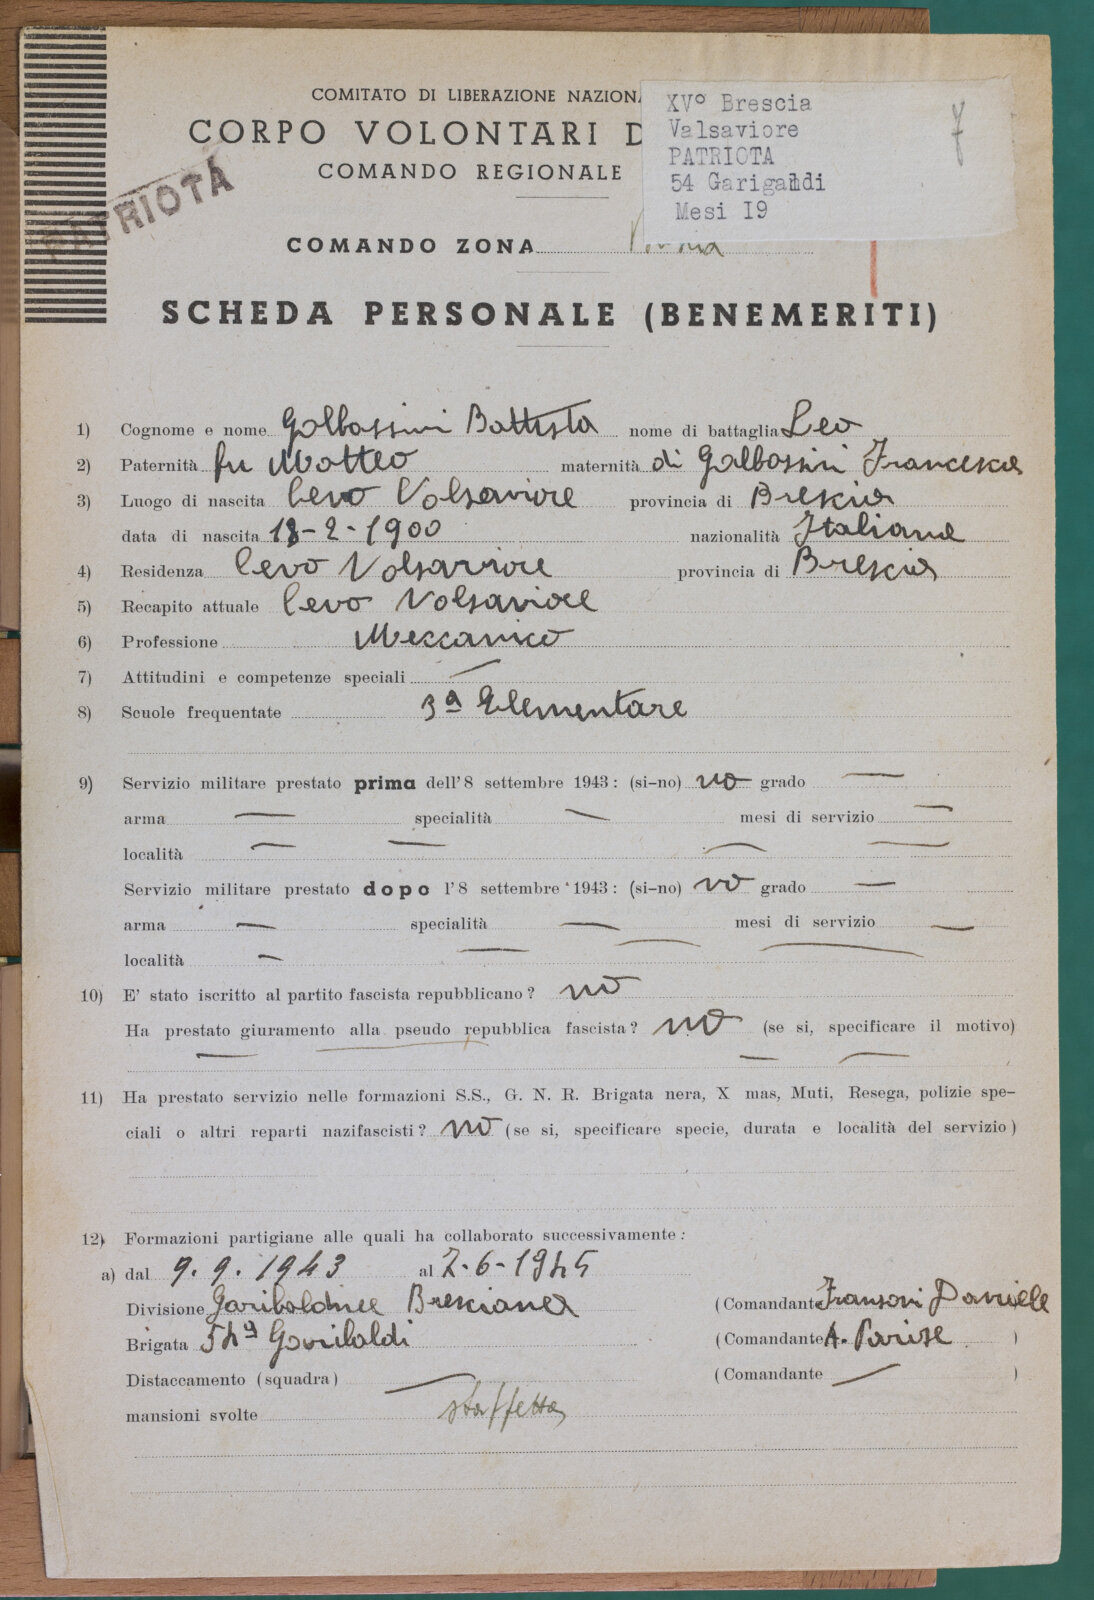 COMITATO DI LIBERAZIONE NAZIONA
CORPO VOLONTARI D
COMANDO REGIONALE
XV° Brescia
Valsaviore
PATRIOTA
54 Garigandi
Mesi I9
7
PATRIOTA
COMANDO ZONA
SCHEDA PERSONALE (BENEMERITI)
1) Cognome e nome Galbassini Battista nome di battaglia Leo
2) Paternità fu Matteo maternità di Galbassini Francesca
3) Luogo di nascita Cevo Valsaviore provincia di Brescia
data di nascita 18-2-1900 nazionalità Italiana
4) Residenza Cevo Valsaviore provincia di Brescia
5) Recapito attuale Cevo Valsaviore
6) Professione Meccanico
7) Attitudini e competenze speciali —
8) Scuole frequentate 3ª Elementare
9) Servizio militare prestato prima dell'8 settembre 1943: (si-no) no grado —
arma — specialità — mesi di servizio —
località — — — —
Servizio militare prestato dopo l'8 settembre 1943: (si-no) no grado —
arma — specialità — mesi di servizio —
località — — — —
10) E' stato iscritto al partito fascista repubblicano? no
Ha prestato giuramento alla pseudo repubblica fascista? no (se si, specificare il motivo)
— — — —
11) Ha prestato servizio nelle formazioni S.S., G. N. R. Brigata nera, X mas, Muti, Resega, polizie spe-
ciali o altri reparti nazifascisti? no (se si, specificare specie, durata e località del servizio)
12) Formazioni partigiane alle quali ha collaborato successivamente:
a) dal 9.9.1943 al 2-6-1945
Divisione Garibaldina Bresciana (Comandante Fransoni Daniele
Brigata 54ª Garibaldi (Comandante A. Parise )
Distaccamento (squadra) — (Comandante — )
mansioni svolte staffetta